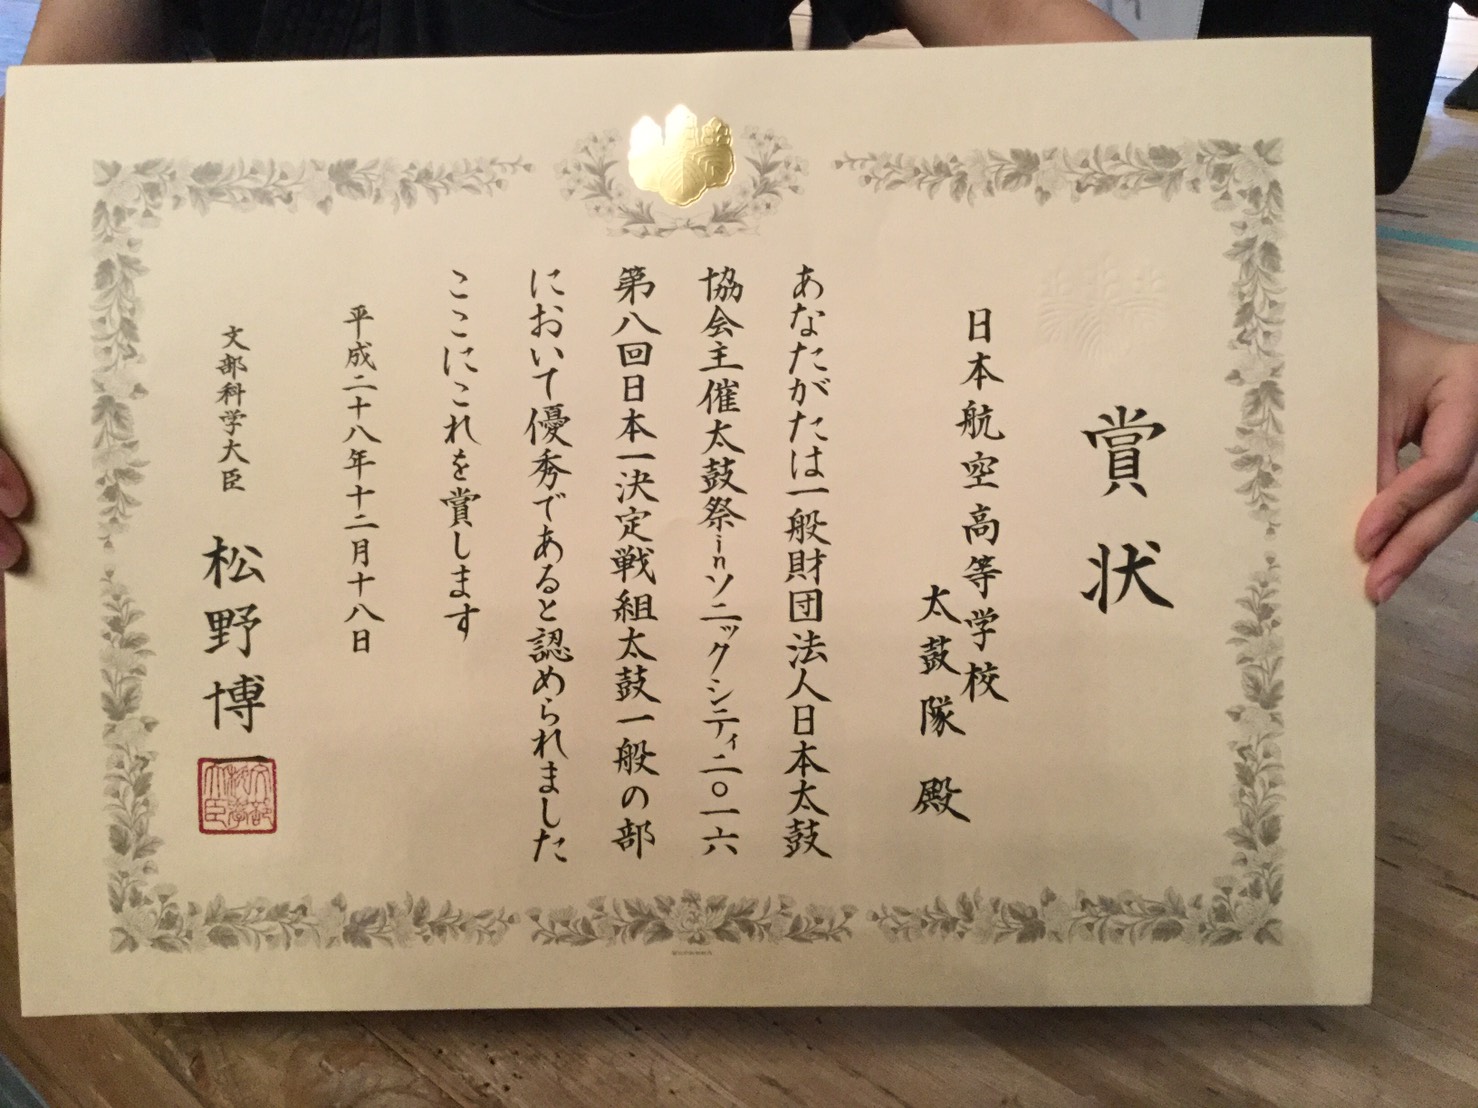 賞状
日本航空高等学校
太鼓隊 殿
あなたがたは一般財団法人日本太鼓
協会主催太鼓祭inソニックシティ二〇一六
第八回日本一決定戦組太鼓一般の部
において優秀であると認められました
ここにこれを賞します
平成二十八年十二月十八日
文部科学大臣 松野博一